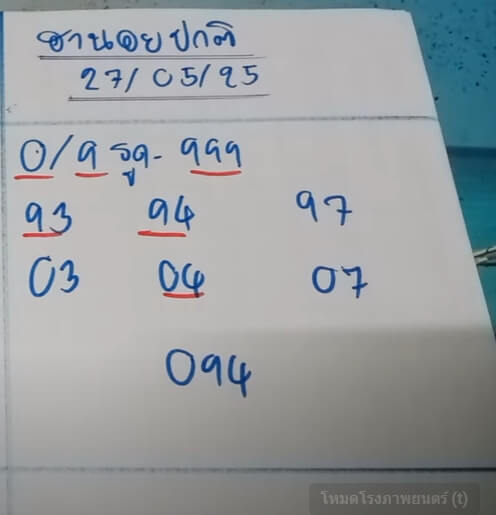 ฮานอยปกติ
27/05/25
0/9 รูด- 999
93 94 97
03 04 07
094
โหมดโรงภาพยนตร์ (t)